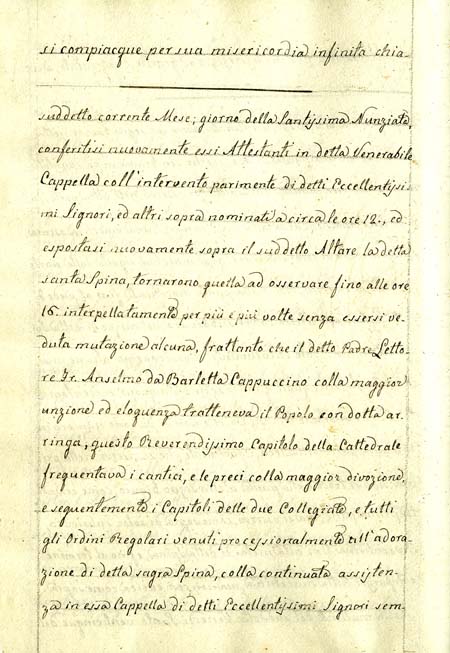 si compiacque per sua misericordia infinita chia-
suddetto corrente Mese; giorno della Santissima Nunziata,
conferitisi nuovamente essi Attestanti in detta Venerabile
Cappella coll'intervento parimente di detti Eccellentissi-
mi Signori, ed altri sopra nominati a circa le ore 12., ed
espostasi nuovamente sopra il suddetto Altare la detta
santa Spina, tornarono quella ad osservare fino alle ore
16. interpellatamente per più e più volte senza essersi ve-
duta mutazione alcuna, frattanto che il detto Padre Letto-
re Fr. Anselmo da Barletta Cappuccino colla maggior
unzione ed eloquenza tratteneva il Popolo con dotta ar-
ringa, questo Reverendissimo Capitolo della Cattedrale
frequentava i cantici, e le preci colla maggior divozione,
e seguentemente i Capitoli delle due Collegiate, e tutti
gli Ordini Regolari venuti processionalmente all'adora-
zione di detta sagra Spina, colla continuata assisten-
za in essa Cappella di detti Eccellentissimi Signori sem-